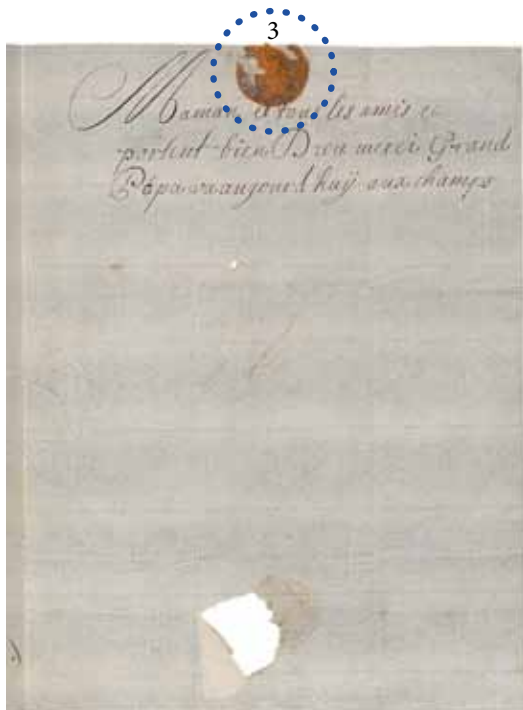 3
Maman et tous les amis ce
portent bien Dieu merci Grand
Papa va aujourd huÿ aux champs